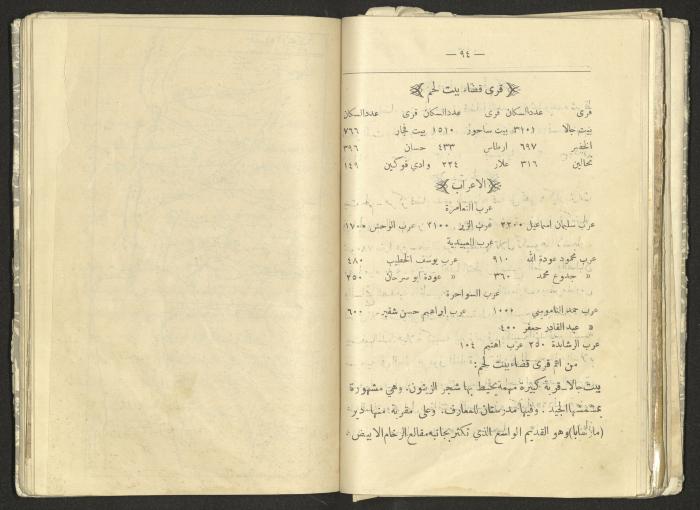 — ٩٤ —
﴿ قرى قضاء بيت لحم ﴾
قرى عددالسكان قرى عددالسكان قرى عددالسكان
بيت جالا ٣١٠١ بيت ساحور ١٥١٠ بيت فجار ٧٦٦
الخضر ٦٩٧ ارطاس ٤٣٣ حسان ٣٩٦
نحالين ٣١٦ علار ٢٢٤ وادي فوكين ١٤٩
﴿ الأعراب ﴾
عرب التعامرة
عرب سلمان اسماعيل ٢٢٠٠ عرب الزير ٢١٠٠ عرب الوحش ١٧٠٠
عرب العبيدية
عرب محمود عودة الله ٩١٠ عرب يوسف الخطيب ٤٨٠
» جدوع محمد ٣٦٠ » عودة ابو سرحان ٢٥٠
عرب السواحرة
عرب حمد الناموسي ١٠٠٠ عرب ابراهيم حسن شقير ٦٠٠
» عبد القادر جعفر ٤٠٠
عرب الرشايدة ٢٥٠ عرب اهتيم ١٠٤
من اهم قرى قضاء بيت لحم:
بيت جالا_قرية كبيرة مهمة يحيط بها شجر الزيتون. وهي مشهورة
بمشمشها الجيد . وفيها مدرستان للمعارف. وعلى مقربة منها دير
(مار سابا) وهو القديم الواسع الذي تكثر بجانبه مقالع الرخام الابيض